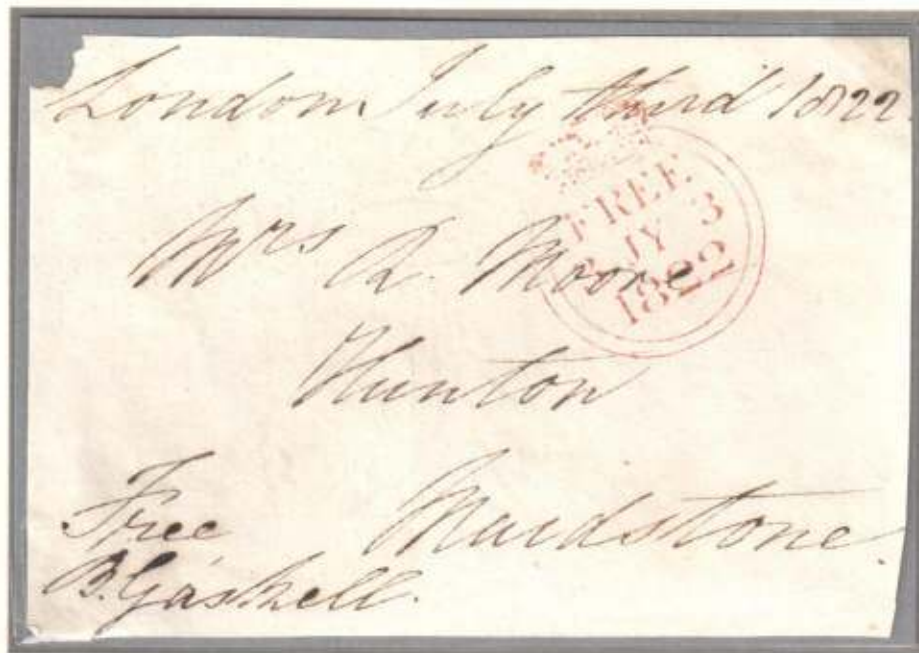 London July third 1822
FREE
3 JY 3
1822
Mrs R. Moore
Hunton
Maidstone.
Free
B. Gaskell.